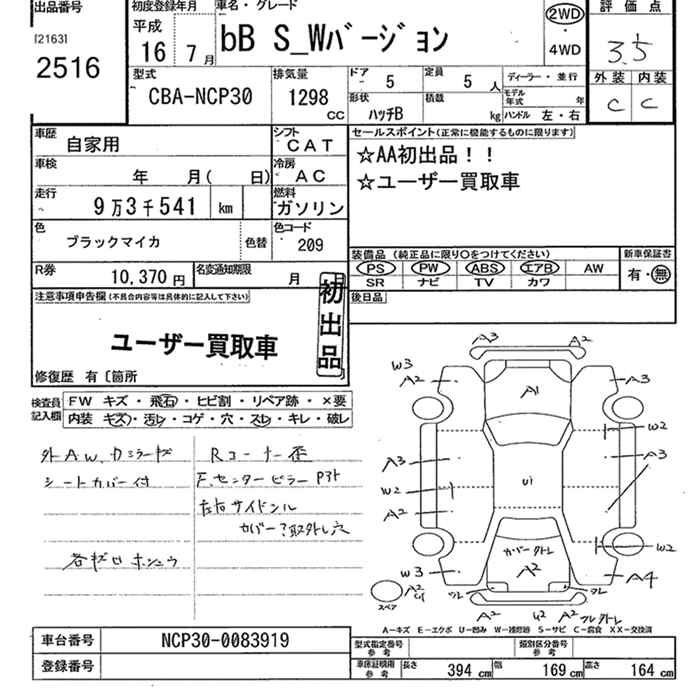 出品番号
[2163]
2516
初度登録年月
平成
16 7月
車名・グレード
bB S_Wバージョン
2WD
・
4WD
評価点
3.5
外装 内装
C C
型式
CBA-NCP30
排気量
1298
CC
ドア
5
定員
5人
形状
ハッチB
積載
kg
ディーラー・並行
モデル年式 年
ハンドル 左・右
車歴
自家用
シフト
CAT
車検
年 月( 日)
冷房
AC
走行
9万3千541 km
燃料
ガソリン
色
ブラックマイカ
色替
色コード
209
R券
10,370円
名変通知期限
月
セールスポイント(正常に機能するものに限ります)
☆AA初出品!!
☆ユーザー買取車
装備品 (純正品に限り○をつけてください)
PS PW ABS エアB AW
SR ナビ TV カワ
新車保証書
有・無
後日品
注意事項申告欄(不具合内容等は具体的に記入して下さい)
ユーザー買取車
初出品
修復歴 有〔箇所
検査員
記入欄
FW キズ・飛石・ヒビ割・リペア跡・×要
内装 キズ・汚レ・コゲ・穴・スレ・キレ・破レ
外AW.カミラーキズ
シートカバー付
各キズ凹ホシュウ
Rコーナー歪
F.センターピラー Pアト
左右サイドシル
カバー?取外し穴
A3 A2
W3
A2
A1
A3
W2
A3
A3
W2
A2
U1
カバー タトレ
A2
W2
W3
A4
A2
U1
スペア
スレ スレ
A2 U2 A2 スレタトレ
A-キズ E-エクボ U-凹み W-補修跡 S-サビ C-腐食 XX-交換済
車台番号
NCP30-0083919
登録番号
型式指定番号
参考
類別区分番号
参考
車庫証明用
参考
長さ 394 cm
幅 169 cm
高さ 164 cm